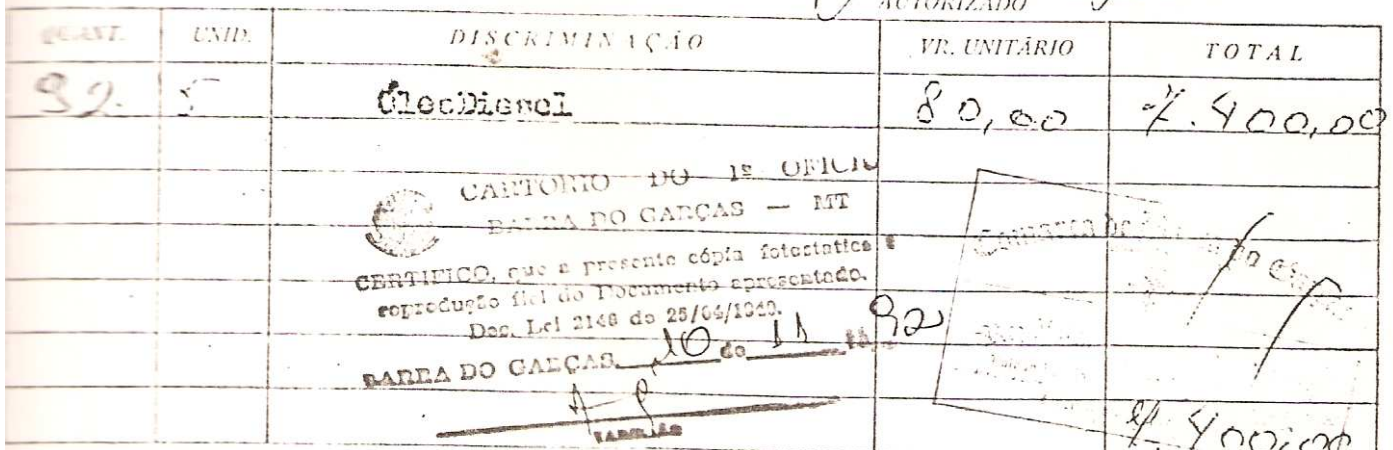 AUTORIZADO
QUANT. UNID. DISCRIMINAÇÃO VR. UNITÁRIO TOTAL
92. ÓleoDiesel 80,00 7.400,00
CARTORIO DO 1º OFICIO
BARRA DO GARÇAS — MT
CERTIFICO, que a presente cópia fotostatica é
reprodução fiel do Documento apresentado.
Dec. Lei 2148 de 25/04/1940.
BARRA DO GARÇAS 10 de 11 92
TABELIÃO
Comarca
400,00